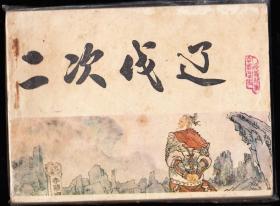 二次伐辽